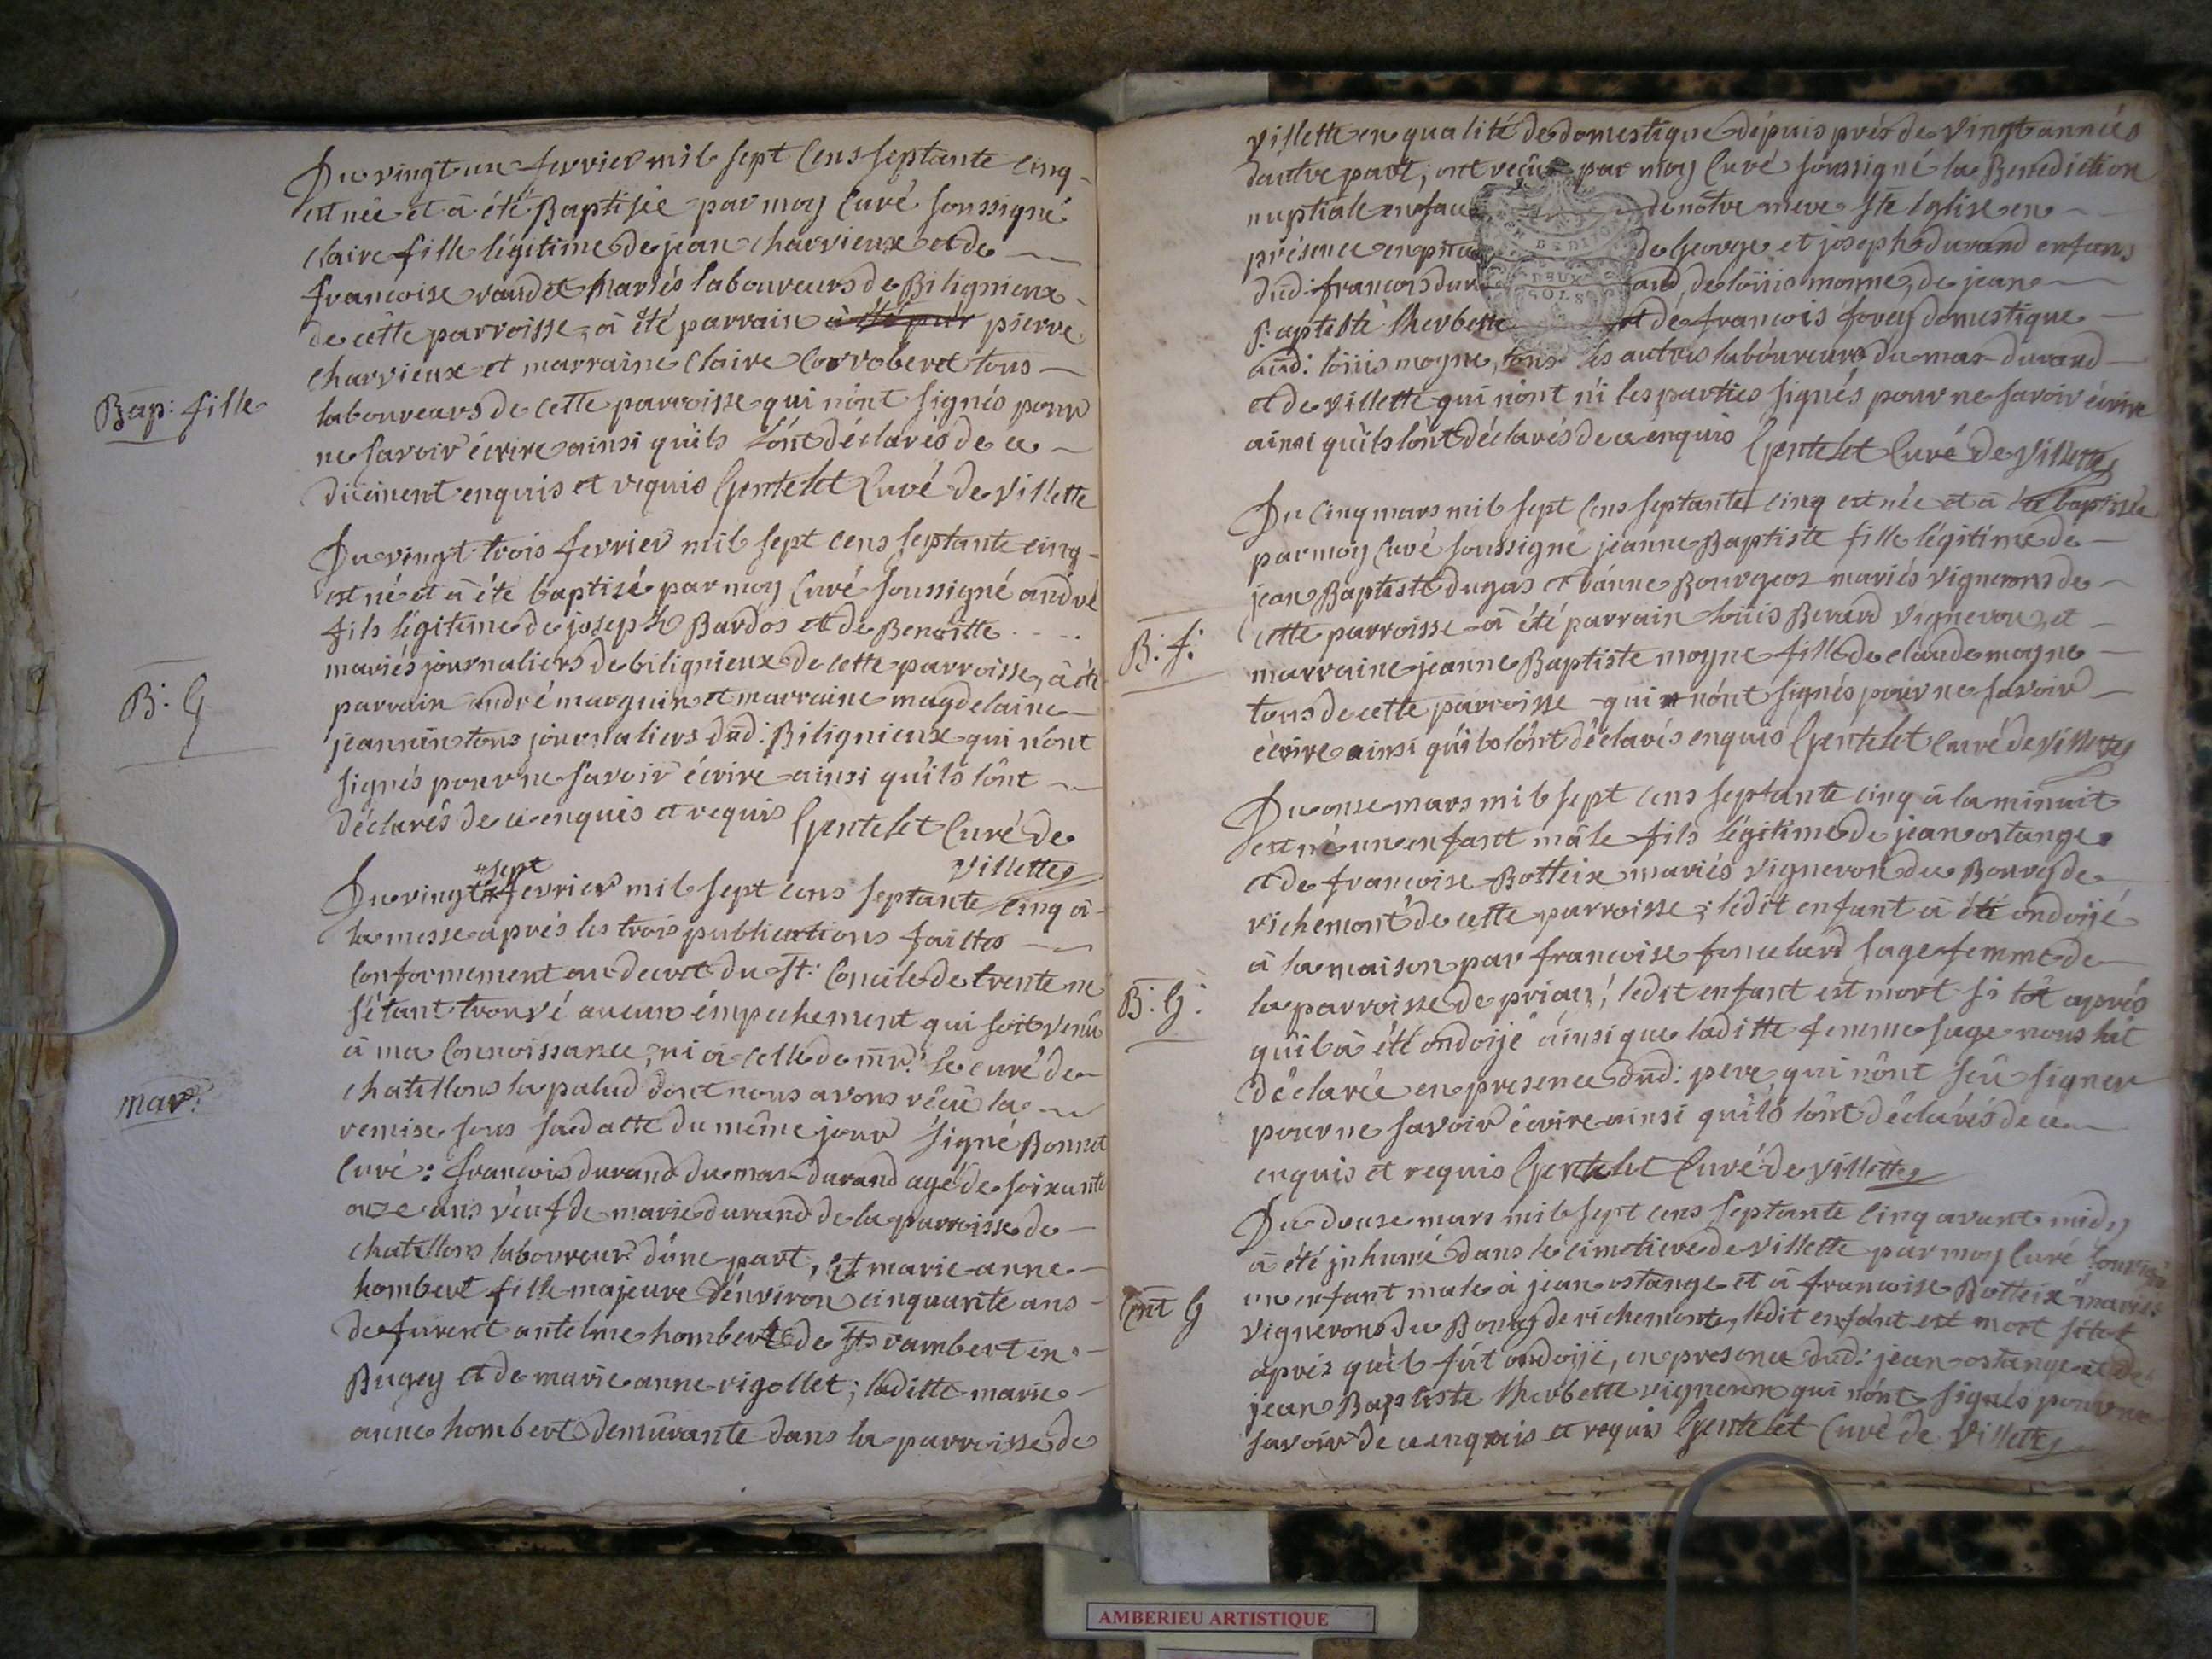 Du vingt un fevrier mil sept cens septante cinq
est née et à été Baptisée par moy Curé soussigné
claire fille légitime de jean charvieux et de
francoise vaudet Mariés laboureurs de Bilignieux
de cette parroisse, à été parrain à été par pierre
charvieux et marraine claire Corroberet tous
Bap: fille
laboureurs de cette parroisse qui n'ont signés pour
ne savoir écrire ainsi qu'ils l'ont déclarés de ce
düement enquis et requis Gentelet Curé de Villette
Du vingt trois fevrier mil sept cens septante cinq
est né et à été baptisé par moy Curé soussigné andré
fils légitime de joseph Bardos et de Benoitte . . . .
mariés journaliers de bilignieux de cette parroisse, à été
B: G
parrain andré marguin et marraine magdelaine
jeannin tous journaliers dud: Bilignieux qui n'ont
signés pour ne savoir écrire ainsi qu'ils l'ont
déclarés de ce enquis et requis Gentelet Curé de
Villette
Du vingt sept fevrier mil sept cens septante cinq à
la messe aprés les trois publications faittes
conformement au decret du St: Concile de trente ne
s'étant trouvé aucun émpechement qui soit venû
à ma Connoissance, ni à celle de mr: le curé de
chatillons la palud dont nous avons réçû la
mar:
remise sous sa datte du même jour signé Bonnet
Curé: francois durand du mas durand agé de soixante
onze ans véuf de marie durand de la parroisse de
chatillons laboureur d'une part, et marie anne
hombert fille majeure d'énviron cinquante ans
de furent antelme hombert de St rambert en
Bugey et de marie anne rigollet; laditte marie
anne hombert demurante dans la parroisse de
villette en qualité de domestique dépuis prés de vingt années
d'autre part, ont reçûe par moy Curé soussigné la Benediction
nuptiale en fac de nôtre mere ste église en
présence en prin de George et joseph durand enfans
dud: francois dur and, de loüis moyne, de jean
Baptiste therbette et de francois forey domestique
aud: loüis moyne, tous les autres laboureurs du mas durand
et de villette qui n'ont ni les parties signés pour ne savoir écrire
ainsi qu'ils l'ont déclarés de ce enquis Gentelet Curé de Villette
Du cinq mars mil sept cens septante cinq est née et à été baptisée
par moy Curé soussigné jeanne Baptiste fille légitime de
jean Baptiste dugas et d'anne Bourgeos mariés vignerons de
cette parroisse à été parrain loüis Berard vigneron, et
B: f:
marraine jeanne Baptiste moyne fille de claude moyne
tous de cette parroisse qui n'ont signés pour ne savoir
écrire ainsi qu'ils l'ont déclarés enquis Gentelet Curé de Villette
Du onse mars mil sept cens septante cinq à la minuit
est né un enfant mâle fils légitime de jean ostange
et de francoise Botteix mariés vigneron du Bourg de
richemont de cette parroisse; ledit enfant à été ondoijé
à la maison par francoise foncelard sage femme de
B: G:
la parroisse de priay; ledit enfant est mort si tôt aprés
qu'il à été ondoijé ainsi que laditte femme sage nous l'at
déclarée en presence dud: pere, qui n'ont seû signer
pour ne savoir écrire ainsi qu'ils l'ont déclarés de ce
enquis et requis Gentelet Curé de Villette
Du douse mars mil sept cens septante cinq avant midy
à été jnhumé dans le cimetiere de villette par moy Curé soussigné
un enfant male à jean ostange et à francoise Botteix mariés
Ent G
vignerons du Bourg de richemont, ledit enfant est mort sitot
aprés qu'il fût ondoijé, en presence dud: jean ostange et de
jean Baptiste therbette vigneron qui n'ont signés pour ne
savoir de ce enquis et requis Gentelet Curé de Villette
AMBERIEU ARTISTIQUE